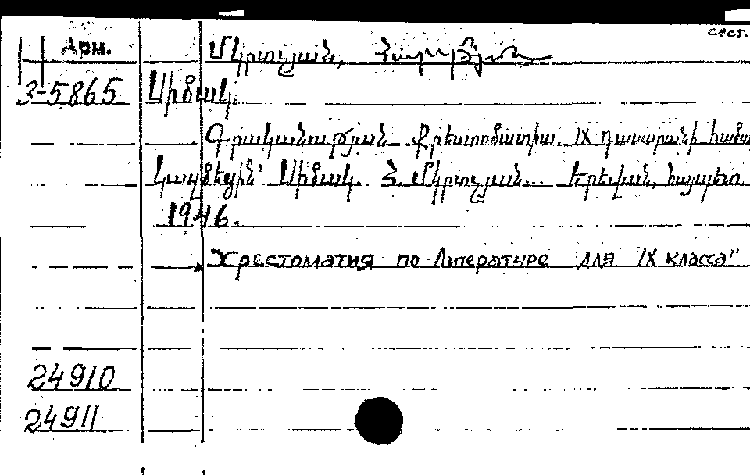 сост.
Арм. Մկրտչյան,
3-5865 Սիմակ.
Գրականության քրեստոմատիա. IX դասարանի համար
կազմեցին՝ Սիմակ. Հ. Մկրտչյան. Երևան, հայպետ
1946.
"Хрестоматия по литературе для IX класса"
24910
24911